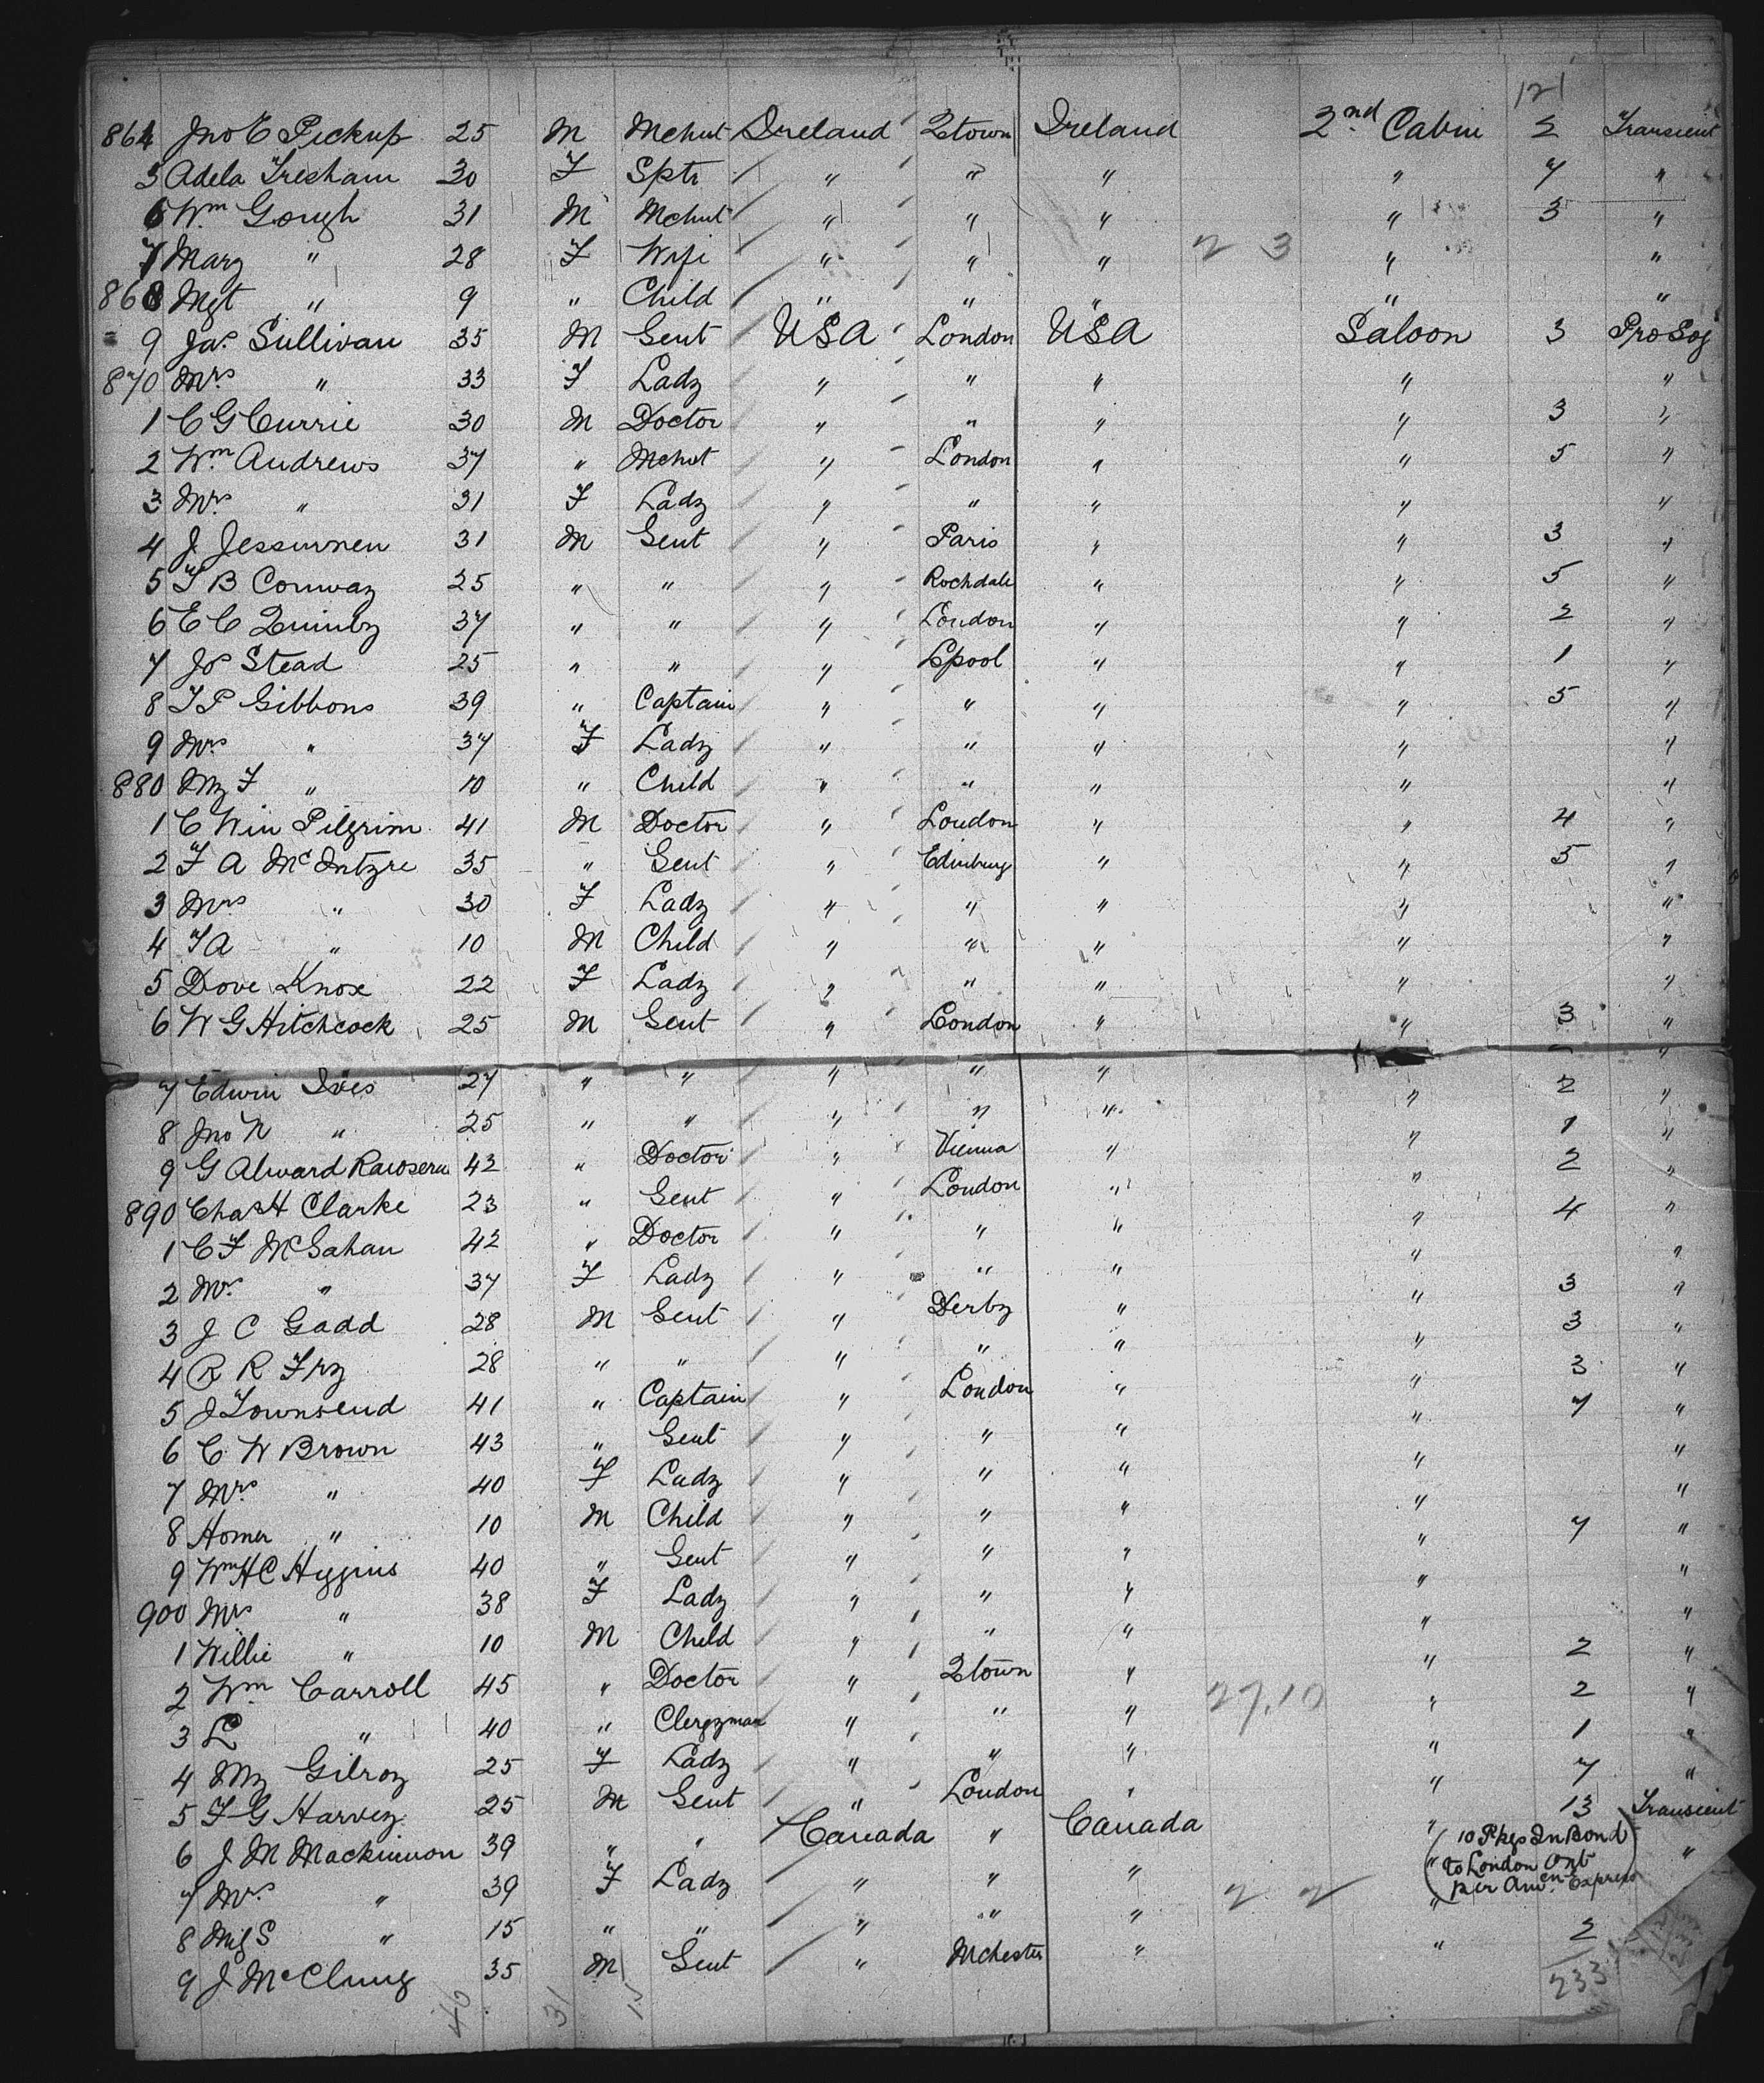 121
864 Jno E Pickup 25 M Mchnt Ireland Qtown Ireland 2nd Cabin 2 Transient
5 Adela Tresham 30 F Sptr " " " " 7 "
6 Wm Gough 31 M Mchnt " " " " 3 "
7 Mary " 28 F Wife " " " 2 3 " "
868 Mgt " 9 " Child " " " " "
9 Jas Sullivan 35 M Gent USA London USA Saloon 3 Pro Soj
870 Mrs " 33 F Lady " " " " "
1 C G Currie 30 M Doctor " " " " 3 "
2 Wm Andrews 37 " Mchnt " London " " 5 "
3 Mrs " 31 F Lady " " " " "
4 J Jessurnen 31 M Gent " Paris " " 3 "
5 T B Conway 25 " " " Rochdale " " 5 "
6 E C Quimby 37 " " " London " " 2 "
7 Jos Stead 25 " " " Lpool " " 1 "
8 T P Gibbons 39 " Captain " " " " 5 "
9 Mrs " 37 F Lady " " " " "
880 My F " 10 " Child " " " " "
1 C Win Pilgrim 41 M Doctor " London " " 4 "
2 F A McIntyre 35 " Gent " Edinburg " " 5 "
3 Mrs " 30 F Lady " " " " "
4 T A " 10 M Child " " " " "
5 Dove Knox 22 F Lady " " " " "
6 W G Hitchcock 25 M Gent " London " " 3 "
7 Edwin Ives 27 " " " " " " 2 "
8 Jno N " 25 " " " " " " 1 "
9 G Alward 42 " Doctor " Vienna " " 2 "
890 Chas H Clarke 23 " Gent " London " " 4 "
1 C F McGahan 42 " Doctor " " " " "
2 Mrs " 37 F Lady " " " " 3 "
3 J C Gadd 28 M Gent " Derby " " 3 "
4 R R Fry 28 " " " " " " 3 "
5 J Townsend 41 " Captain " London " " 7 "
6 C W Brown 43 " Gent " " " " "
7 Mrs " 40 F Lady " " " " "
8 Homer " 10 M Child " " " " 7 "
9 Wm H C Higgins 40 " Gent " " " " "
900 Mrs " 38 F Lady " " " " "
1 Willie " 10 M Child " " " " 2 "
2 Wm Carroll 45 " Doctor " Qtown " 27.10 " 2 "
3 L " 40 " Clergyman " " " " 1 "
4 My Gilroy 25 F Lady " " " " 7 "
5 F G Harvey 25 M Gent " London " " 13 Transient
6 J M Mackinnon 39 " " Canada " Canada " (10 Pkgs In Bond "
7 Mrs " 39 F Lady " " " 2 2 " to London Ont
8 S " 15 " " " " " " per Amcn Express) 2
9 J McClung 35 M Gent " Mchester " "
233
46 31 15